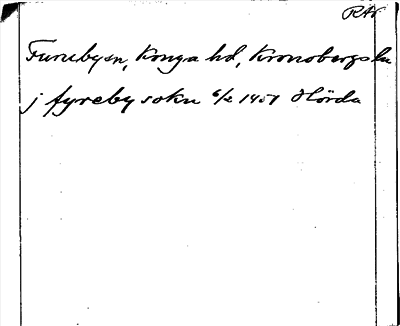 RAP
Furubysn, Konga hd, Kronobergs ln
j fyreby sokn 6/2 1451 Hörda